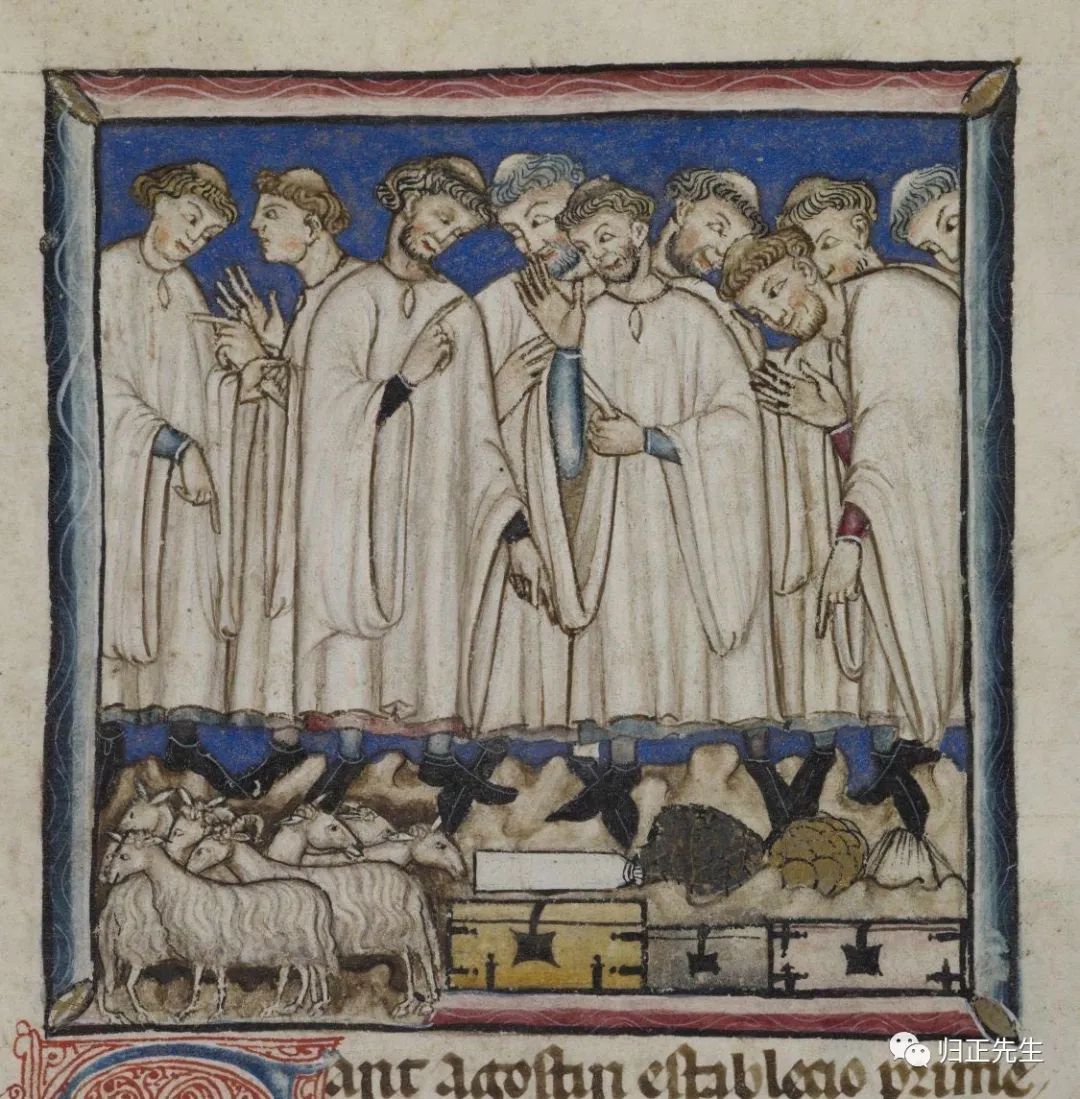 ant agostin establecio prime
归正先生